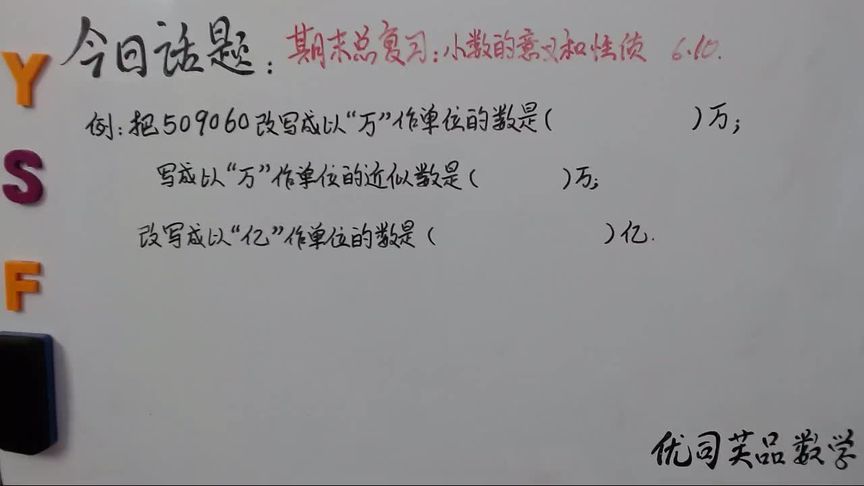 今日话题：期末总复习：小数的意义和性质 6.10.
例：把509060改写成以“万”作单位的数是（ ）万；
写成以“万”作单位的近似数是（ ）万；
改写成以“亿”作单位的数是（ ）亿.
Y
S
F
优司英品数学